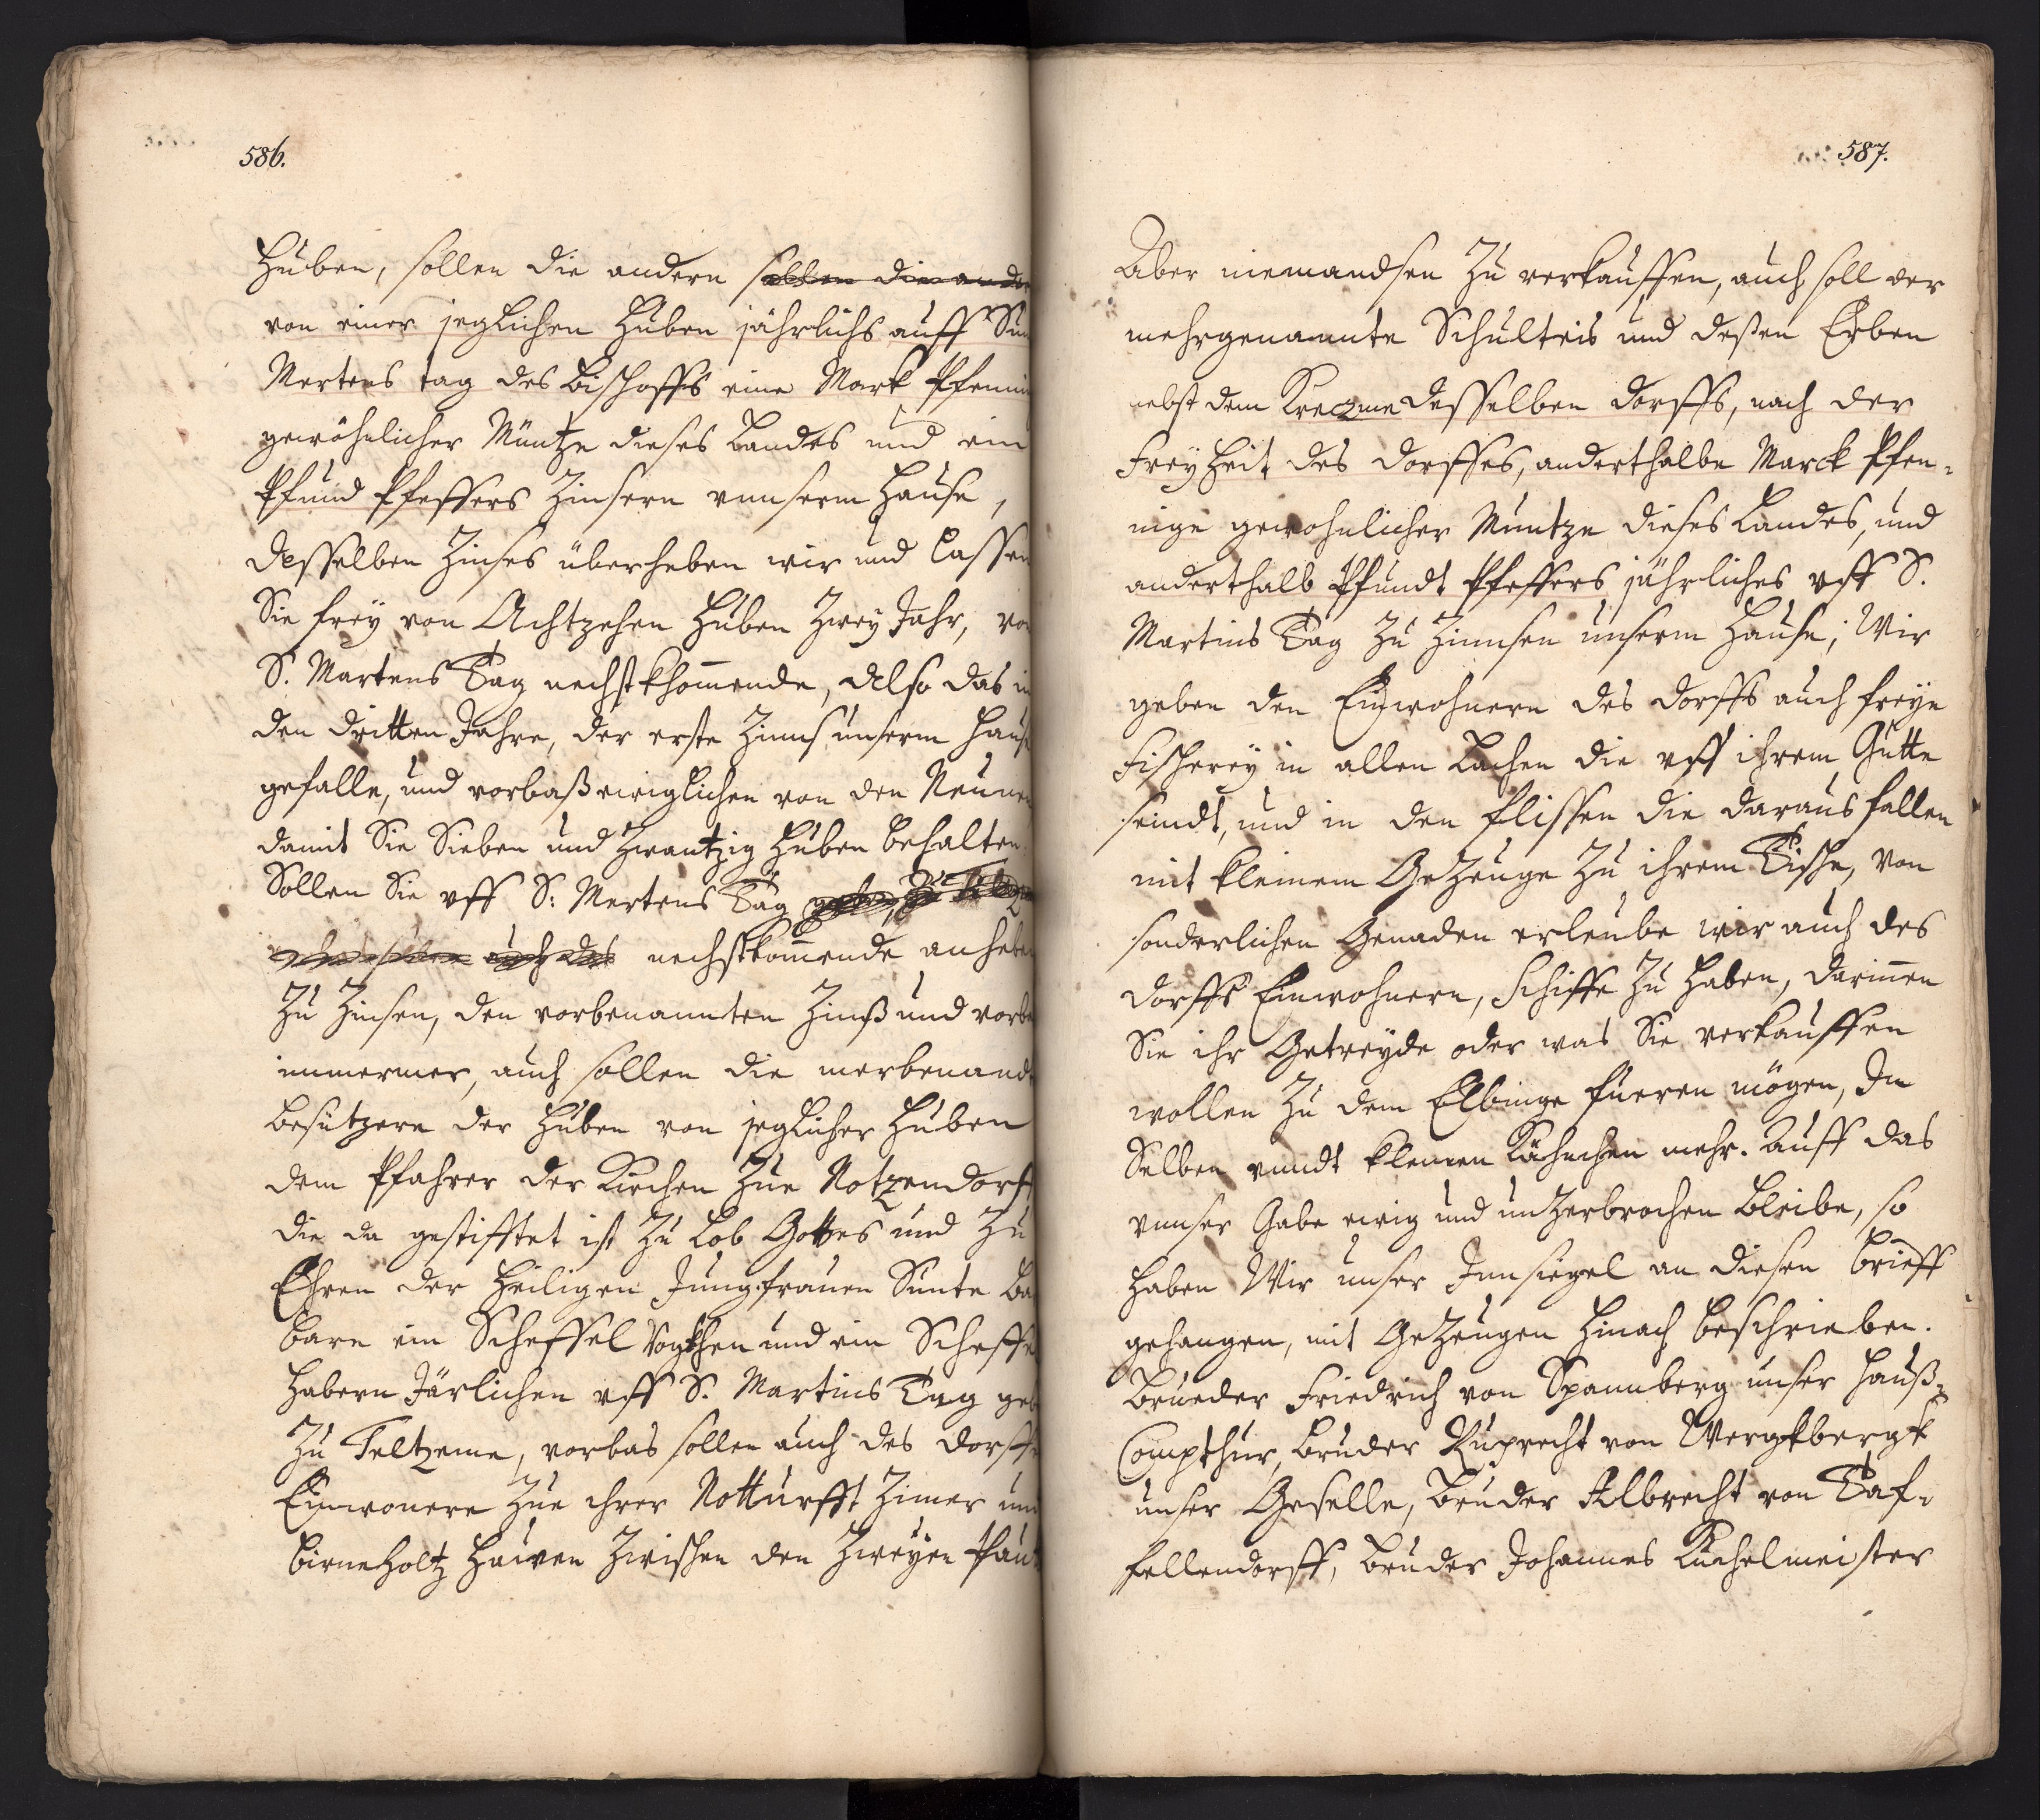 586.
Huben, sollen die andern sollen die ande
von einer jeglichen Huben jährlichs auff Sun
Mertens tag des Bischoffs eine Mark Pfenni
gewöhnlicher Müntze dieses Landes und ein
Pfund Pfeffers Zinsern unserm Hause,
desselben Zinses überheben wir und lassen
Sie frey von Achtzehen Huben Zwey Jahr, von
S. Martens Tag nechstkhom̄ende, Also das in
den dritten Jahre, der erste Zinns unserm Hause
gefalle, und vorbaß ewiglichen von den Neunen
damit Sie Sieben und Zwantzig Huben behalten
Sollen Sie uff S: Mertens Tag
auch das nechstkom̄ende anheben
Zu Zinsen, den vorbenannten Zinß und vorba
immermer, auch sollen die merbenand
besützern der Huben von jeglicher Huben
dem Pfahrer der Kirchen Zue Notzendorf
die da gestifftet ist Zu Lob Gottes und Zu
Ehren der Heiligen Jungfrauen Sunte Ba
barn ein Scheffel Rogkhen und ein Scheffe
Habern Järlichen uff S. Martins Tag geb
Zu Teltzeme, vorbas sollen auch des dorffs
Einwonere Zue ihrer Notturfft Zimer und
birneholtz Hawen Zwischen den Zweyen
587.
Aber niemandsen Zu verkauffen, auch soll der
mehrgenannte Schulteis und deßen Erben
nebst dem Kreczme desselben dorffs, nach der
Freyheit des dorffes, anderthalbe Marck Pfen-
nige gewohnlicher Muntze dieses Landes, und
anderthalb Pfundt Pfeffers jährliches uff S.
Martins Tag Zu Zinnsen unserm Hause; Wir
geben den Einwohnern des dorffs auch freye
Fischerey in allen Lachen die uff ihrem Gutte
seindt, und in den flissen die daraus fallen
mit kleinem GeZeuge Zu ihrem Tische, von
sonderlichen Genaden erleube wir auch des
dorffs Einwohnern, Schiffe Zu haben, darin̄en
Sie ihr Getreyde oder was Sie verkauffen
wollen Zu dem Elbinge füeren mögen, In
Selben unndt klenen Kähnchen mehr. Auff das
unnser Gabe ewig und unZerbrochen bleibe, so
haben Wir unser Innsiegel an diesen brieff
gehangen, mit GeZeugen Hinach beschrieben.
Brueder Friedrich von Spannberg unser Hauß-
Compthur, bruder Ruprecht von Wergkbergk
unser Geselle, bruder Albrecht von Taf-
fellendorff, bruder Johannes Kuchelmeister